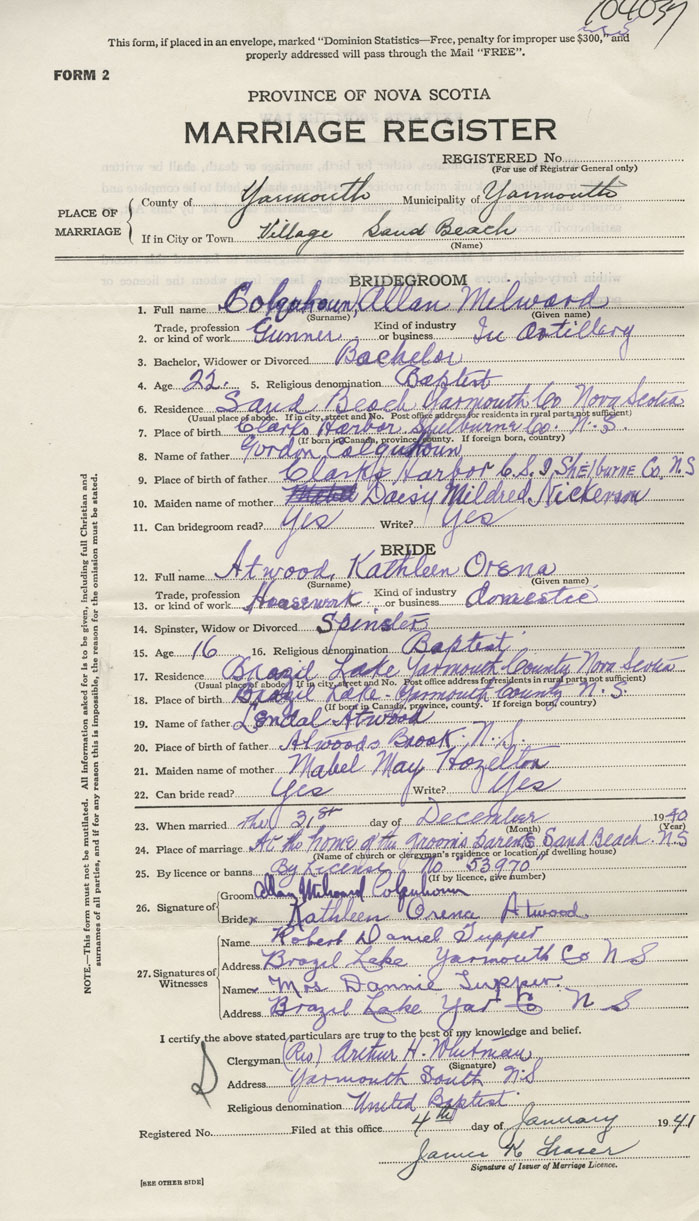 104037
This form, if placed in an envelope, marked "Dominion Statistics—Free, penalty for improper use $300," and
properly addressed will pass through the Mail "FREE".
FORM 2
PROVINCE OF NOVA SCOTIA
MARRIAGE REGISTER
REGISTERED No.
(For use of Registrar General only)
PLACE OF MARRIAGE
County of Yarmouth Municipality of Yarmouth
If in City or Town Village Sand Beach
(Name)
BRIDEGROOM
1. Full name Colquhoun, Allan Milward
(Surname) (Given name)
2. Trade, profession or kind of work Gunner Kind of industry or business In Artillery
3. Bachelor, Widower or Divorced Bachelor
4. Age 22. 5. Religious denomination Baptist
6. Residence Sand Beach Yarmouth Co Nova Scotia
(Usual place of abode. If in city, street and No. Post office address for residents in rural parts not sufficient)
7. Place of birth Clarks Harbor Shelburne Co. N.S.
(If born in Canada, province, county. If foreign born, country)
8. Name of father Gordon Colquhoun
9. Place of birth of father Clarks Harbor C.S.I. Shelburne Co. N.S
10. Maiden name of mother Daisy Mildred Nickerson
11. Can bridegroom read? Yes Write? Yes
BRIDE
12. Full name Atwood, Kathleen Orena
(Surname) (Given name)
13. Trade, profession or kind of work Housework Kind of industry or business domestic
14. Spinster, Widow or Divorced Spinster
15. Age 16 16. Religious denomination Baptist
17. Residence Brazil Lake Yarmouth County Nova Scotia
(Usual place of abode. If in city, street and No. Post office address for residents in rural parts not sufficient)
18. Place of birth Brazil Lake - Yarmouth County N.S.
(If born in Canada, province, county. If foreign born, country)
19. Name of father Lendal Atwood
20. Place of birth of father Atwoods Brook. N.S.
21. Maiden name of mother Mabel May Hozelton
22. Can bride read? Yes Write? Yes
23. When married the 31st day of December 1940
(Month) (Year)
24. Place of marriage At the home of the grooms parents Sand Beach. N.S
(Name of church or clergyman's residence or location of dwelling house)
25. By licence or banns By License No 53970
(If by licence, give number)
26. Signature of
Groom Allan Milward Colquhoun
Bride x Kathleen Orena Atwood
27. Signatures of Witnesses
Name Robert Daniel Tupper
Address Brazil Lake Yarmouth Co N S
Name Mrs Dannie Tupper.
Address Brazil Lake Yar Co N S
I certify the above stated particulars are true to the best of my knowledge and belief.
Clergyman (Rev) Arthur H. Whitman
(Signature)
Address Yarmouth South N.S
Religious denomination United Baptist
Registered No. Filed at this office 4th day of January 1941
James K Fraser
Signature of Issuer of Marriage Licence.
[SEE OTHER SIDE]
NOTE.—This form must not be mutilated. All information asked for is to be given, including full Christian and
surnames of all parties, and if for any reason this is impossible, the reason for the omission must be stated.